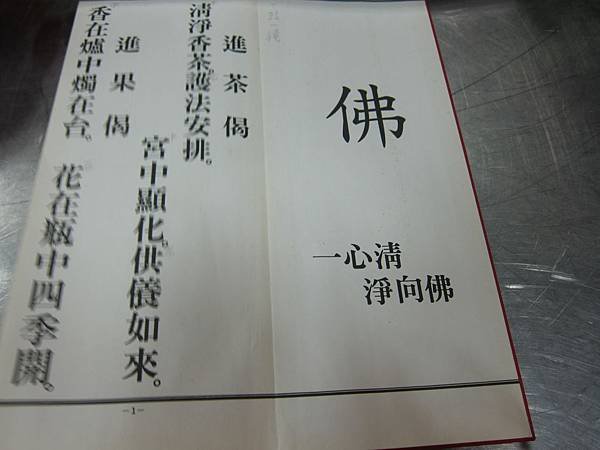 佛
一心清
淨向佛
進茶偈
清淨香茶護法安排。
宮中顯化供養如來。
進果偈
香在爐中燭在台。
花在瓶中四季開。
-1-